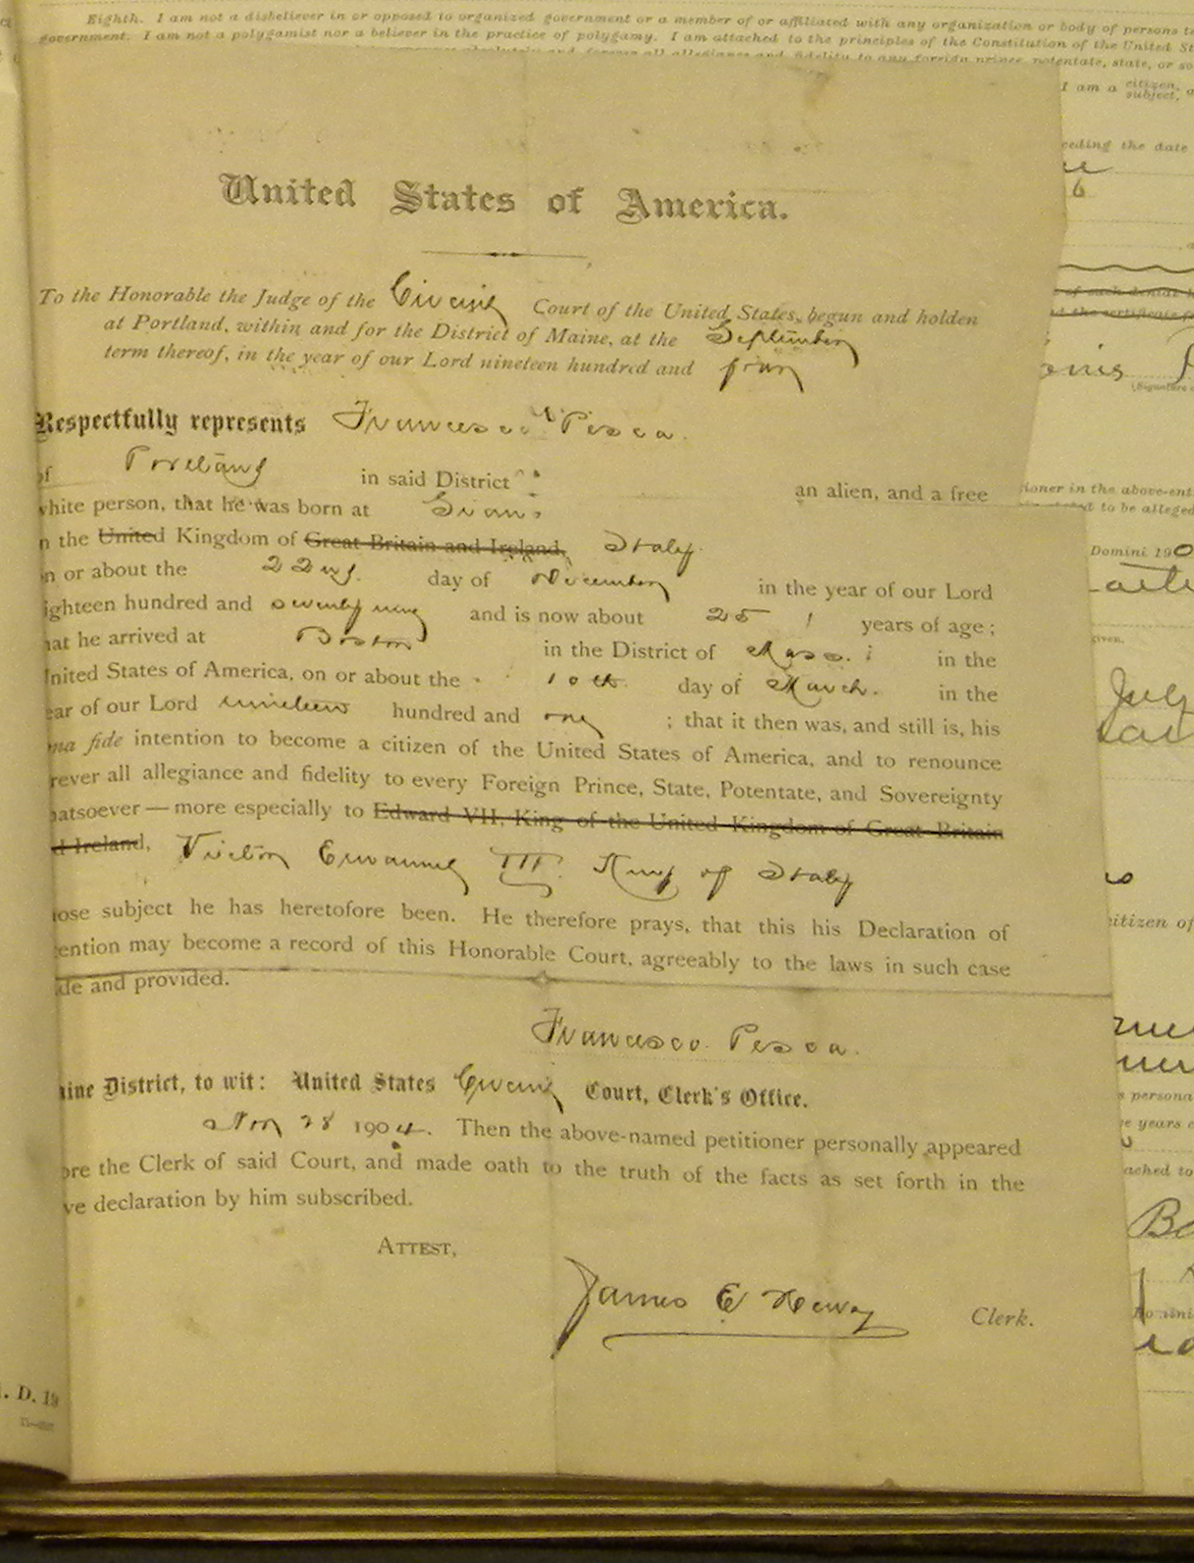 Eighth. I am not a disbeliever in or opposed to organized government or a member of or affiliated with any organization or body of persons
government. I am not a polygamist nor a believer in the practice of polygamy. I am attached to the principles of the Constitution of the United St
absolutely and forever all allegiance and fidelity to any foreign prince, potentate, state, or so
I am a citizen,
subject,
eding the date
United States of America.
To the Honorable the Judge of the Circuit Court of the United States, begun and holden
at Portland, within and for the District of Maine, at the September
term thereof, in the year of our Lord nineteen hundred and four
Respectfully represents Francesco Pesca.
of Portland in said District
an alien, and a free
white person, that he was born at
n the United Kingdom of Great Britain and Ireland, Italy.
n or about the 22nd. day of December in the year of our Lord
ighteen hundred and seventy nine and is now about 25 years of age;
hat he arrived at Boston in the District of Mass. in the
United States of America, on or about the 10th. day of March. in the
ear of our Lord nineteen hundred and one ; that it then was, and still is, his
na fide intention to become a citizen of the United States of America, and to renounce
rever all allegiance and fidelity to every Foreign Prince, State, Potentate, and Sovereignty
hatsoever — more especially to Edward VII, King of the United Kingdom of Great Britain
d Ireland, Victor Emanuel III. King of Italy
hose subject he has heretofore been. He therefore prays, that this his Declaration of
tention may become a record of this Honorable Court, agreeably to the laws in such case
de and provided.
Francesco Pesca.
aine District, to wit: United States Circuit Court, Clerk's Office.
Nov 28 1904. Then the above-named petitioner personally appeared
ore the Clerk of said Court, and made oath to the truth of the facts as set forth in the
ve declaration by him subscribed.
ATTEST,
James E Hewey Clerk.
ioner in the above-ent
to be alleged
Domini 190
given.
July
itizen of
persona
e years
ached to
. D. 19